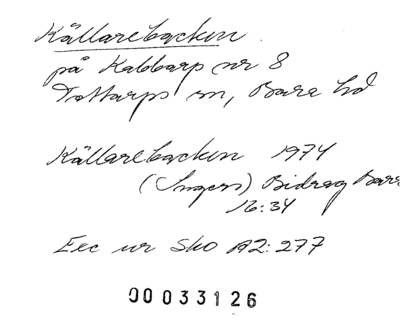 Källarebacken.
på Kabbarp nr 8
Tottarps sn, Bara hd
Källarebacken 1974
(Ingers) Bidrag Bara
16:34
Exc ur Sko A2:277
00033126